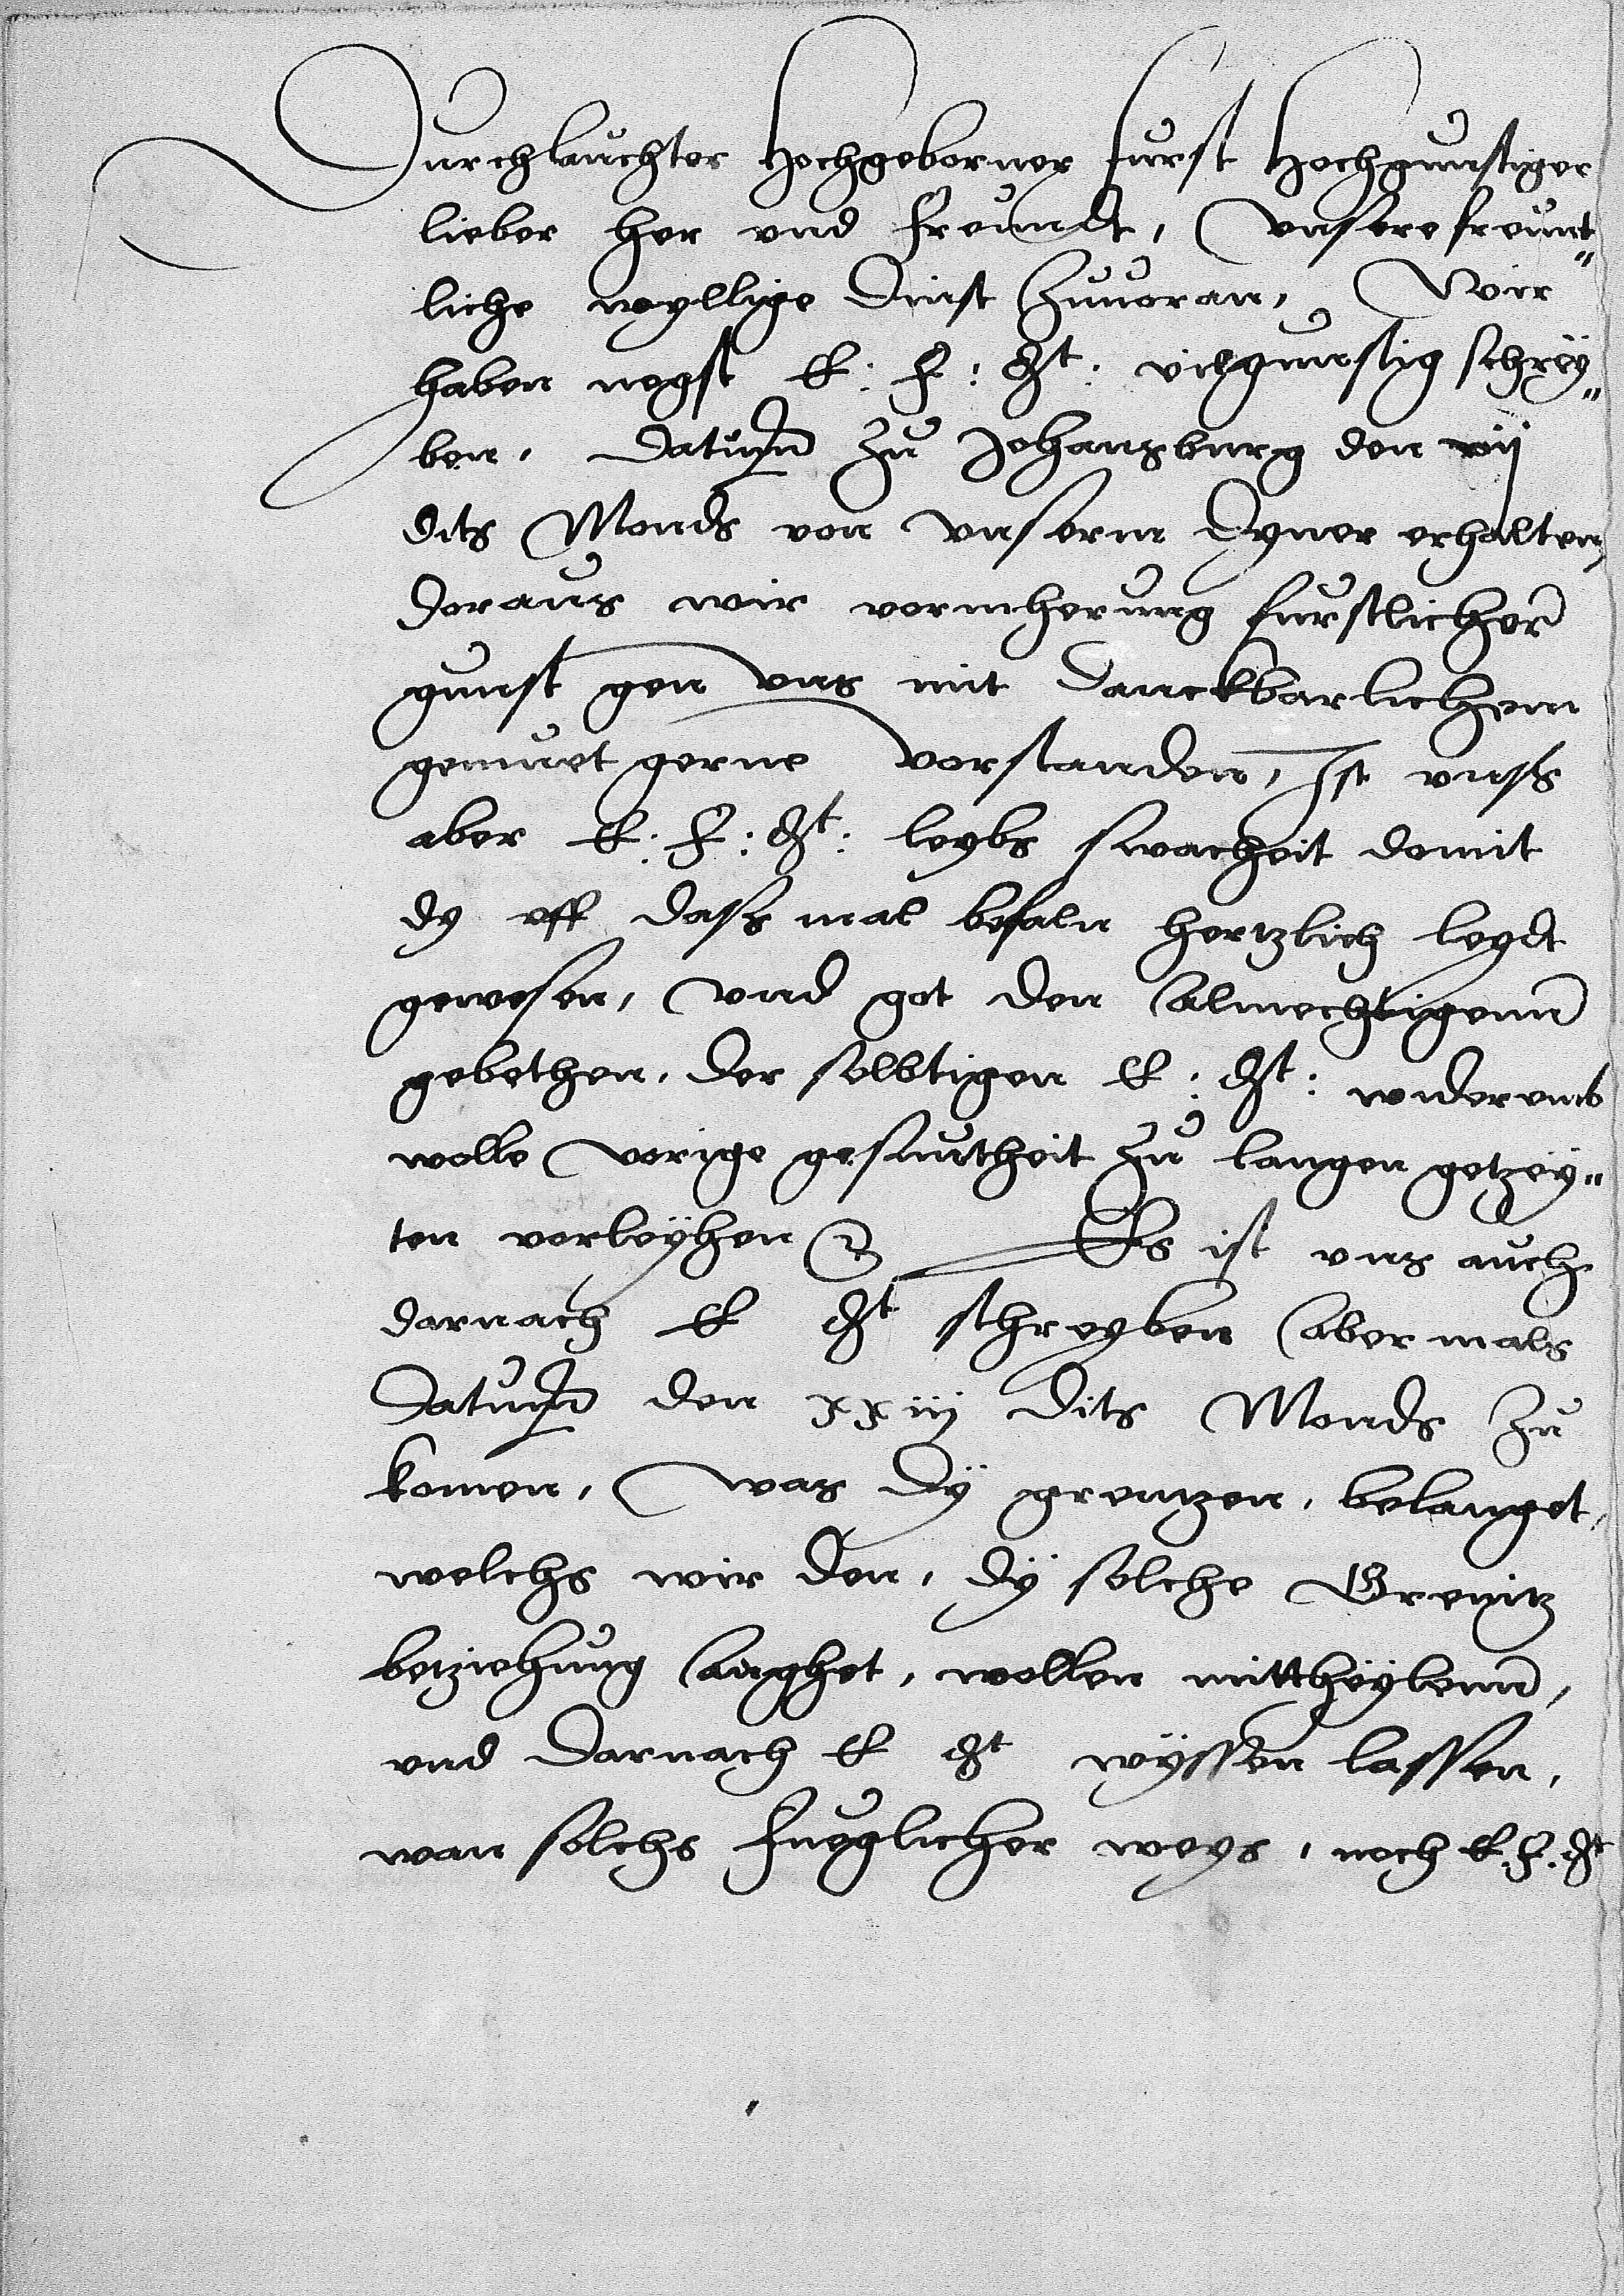 Durchlauchter Hochgeborner furst Hochgunstiger
lieber her vnd freundt, Vnsere freunt„
liche wyllige Dinst Zuuoran, Wir
haben negst E: F: Gt: vielgunstig schrey„
ben, Datum Zu Johansburg den vij
dits Monds von vnserm dyner erhalten,
doraus wir vormherung furstlicher
gunst gen vns mit Danckbarlichem
gemuet gerne vorstanden, Ist vnss
aber E: F: Gt: leybs swacheit domit
dy vff dass mal befaln hertzlich leydt
gewesen, Vnd got den almechtigenn
gebethen, der selbtigen E: Gt: widerumb
wolle vorige gesuntheit Zu langen getzey„
ten vorleyhen Es ist vns auch
darnach E Gt schreyben abermals
Datum den xxiij dits Monds Zu
komen, was dÿ grentzen, belanget,
welchs wir den, dÿ solche Grenitz
betziehung anghet, wollen mittheylenn,
vnd Darnach E Gt wyssen lassen,
wan solchs fueglicher weys, noch E. F. Gt